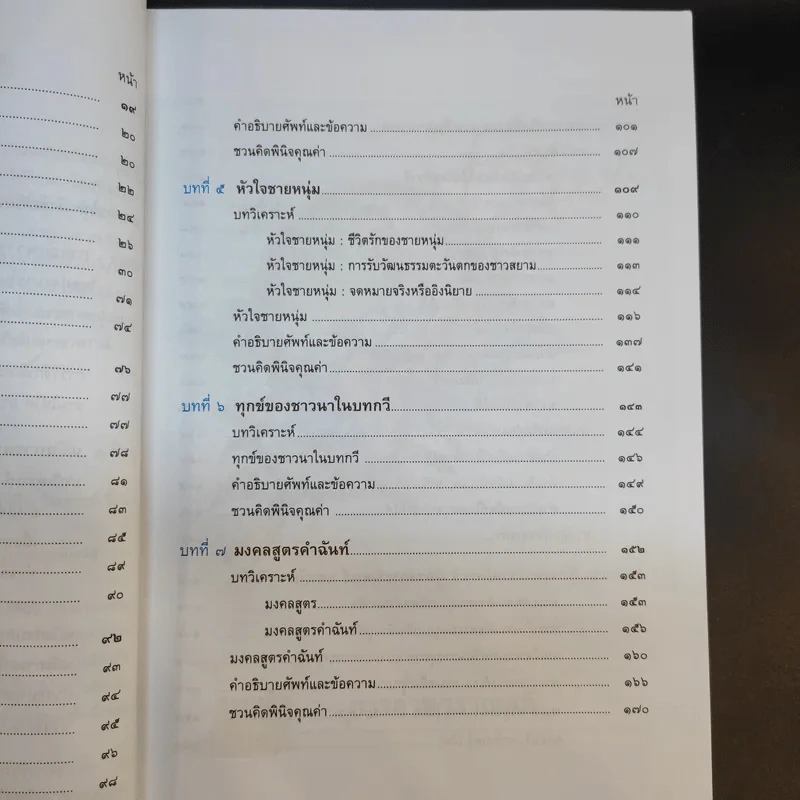 หน้า
๑๙
๒๐
๒๐
๒๒
๒๔
๒๖
๓๐
๗๑
๗๔
๗๖
๗๗
๗๗
๗๘
๘๑
๘๓
๘๕
๘๙
๙๐
๙๒
๙๓
๙๔
๙๕
๙๖
๙๘
หน้า
คำอธิบายศัพท์และข้อความ ๑๐๑
ชวนคิดพินิจคุณค่า ๑๐๗
บทที่ ๕ หัวใจชายหนุ่ม ๑๐๙
บทวิเคราะห์ ๑๑๐
หัวใจชายหนุ่ม : ชีวิตรักของชายหนุ่ม ๑๑๑
หัวใจชายหนุ่ม : การรับวัฒนธรรมตะวันตกของชาวสยาม ๑๑๓
หัวใจชายหนุ่ม : จดหมายจริงหรืออิงนิยาย ๑๑๔
หัวใจชายหนุ่ม ๑๑๖
คำอธิบายศัพท์และข้อความ ๑๓๗
ชวนคิดพินิจคุณค่า ๑๔๑
บทที่ ๖ ทุกข์ของชาวนาในบทกวี ๑๔๓
บทวิเคราะห์ ๑๔๔
ทุกข์ของชาวนาในบทกวี ๑๔๖
คำอธิบายศัพท์และข้อความ ๑๔๙
ชวนคิดพินิจคุณค่า ๑๕๐
บทที่ ๗ มงคลสูตรคำฉันท์ ๑๕๒
บทวิเคราะห์ ๑๕๓
มงคลสูตร ๑๕๓
มงคลสูตรคำฉันท์ ๑๕๖
มงคลสูตรคำฉันท์ ๑๖๐
คำอธิบายศัพท์และข้อความ ๑๖๖
ชวนคิดพินิจคุณค่า ๑๗๐